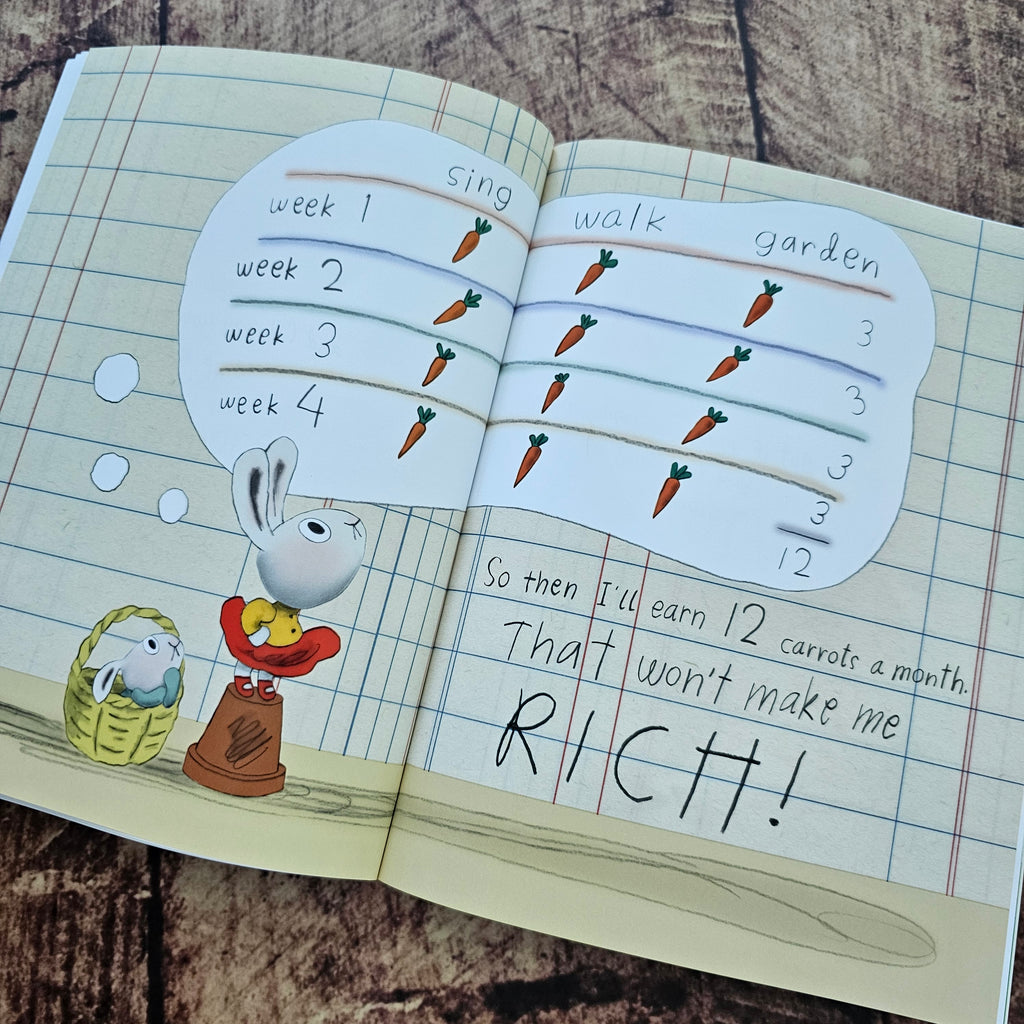 sing walk garden
week 1 3
week 2 3
week 3 3
week 4 3
12
So then I'll earn 12 carrots a month.
That won't make me
RICH!